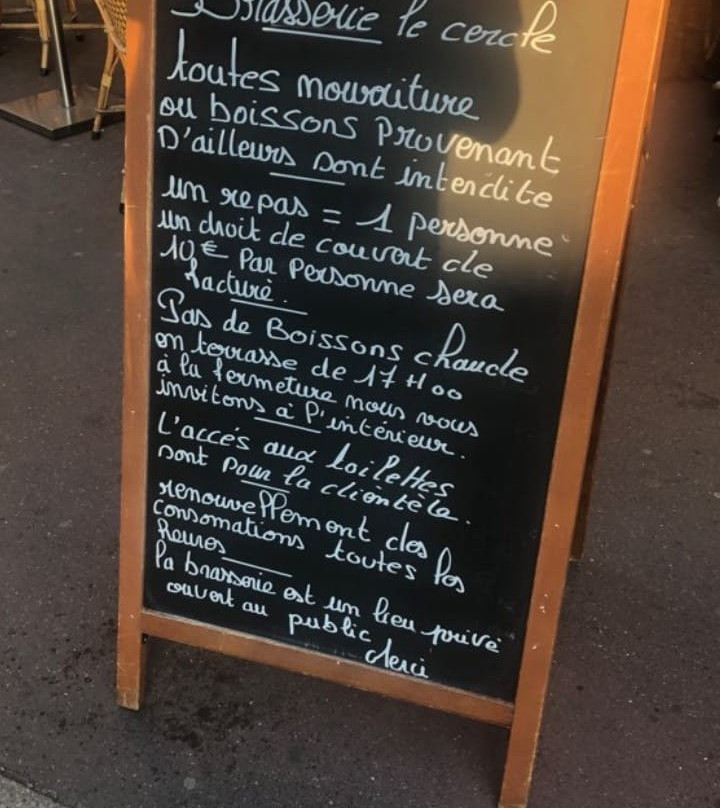 Brasserie le cercle
toutes nouraiture
ou boissons Provenant
D'ailleurs sont intendite
un repas = 1 personne
un droit de couvert de
10€ Par Personne sera
facturé.
Pas de Boissons chaude
en terrasse de 17H00
à la fermeture nous vous
invitons à l'intérieur.
L'accés aux toilettes
sont pour la clientèle.
renouvellement des
consomations toutes les
Heures
la brasserie est un lieu privé
ouvert au public
Merci